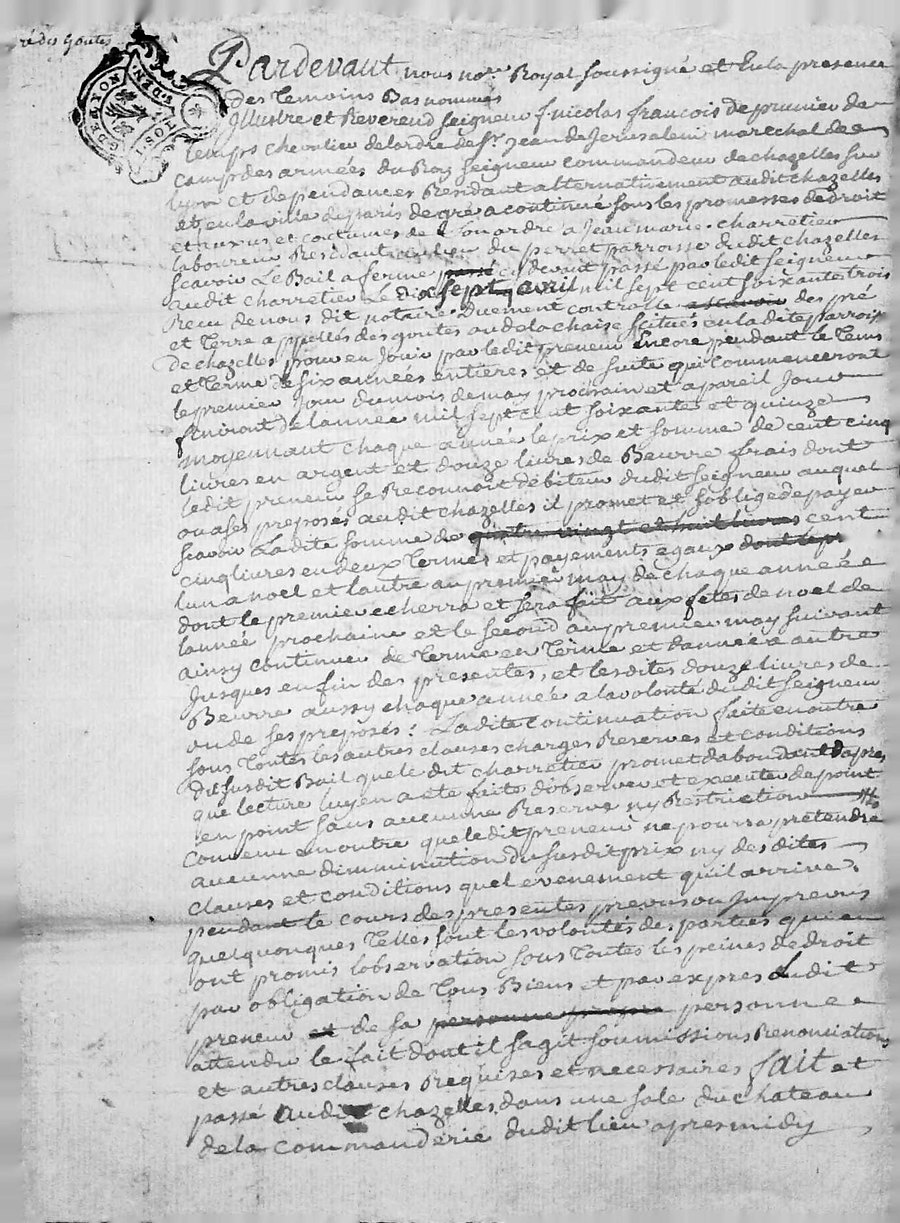 ré des Goutes
GDE LYON
DEN
HUIT SOLS
Pardevant nous no.re Royal soussigné et En la presence
des temoins Bas nommes
Jllustre et Reverend seigneur f. nicolas françois de prunier de
lemps chevalier de lordre de St. Jean de Jerusalem marechal de
camp des armées du Roy seigneur commandeur de chazelles sur
lyon et dependances Residant alternativement audit chazelles
et en la ville de paris de gré a continué sous les promesses de droit
et aux us et coutumes de son ordre a Jean marie charretier
laboureur Residant au lieu du perret parroisse dudit chazelles
scavoir Le Bail a ferme passé cy devant passé par ledit seigneur
audit charretier Le dix sept avril mil sept cent soixante trois
Recu de nous dit notaire duement controlé a scavoir des pré
et Terre appellés des goutes ou de la chaise scitués en la dite parroisse
de chazelles pour en Jouir par ledit preneur Encore pendant le Tems
et Terme de six années entieres et de suite qui commenceront
le premier Jour du mois de may prochain et a pareil Jour
finiront de lannée mil sept cent soixante et quinze
moyennant chaque année le prix et somme de cent cinq
livres en argent et douze livres de Beurre frais dont
ledit preneur se Reconnoit debiteur dudit seigneur auquel
ou a ses preposés audit chazelles il promet et soblige de payer
scavoir Ladite somme de quatre vingt et huit livres cent
cinq livres en deux Termes et payements egaux dont sept
lun a noel et lautre au premier may de chaque année
dont le premier echerra et sera fait aux fetes de noel de
lannée prochaine et le second au premier may suivant
ainsy continuer de Terme en Terme et dannée a autre
Jusques en fin des presentes, et lesdites douze livres de
Beurre aussy chaque année a la volonté dudit seigneur
ou de ses preposés: Ladite continuation faite en outre
sous toutes les autres clauses charges Reserves et conditions
du susdit Bail que le dit charretier promet dabondant dapres
que lecture luy en a ete faite dobserver et executer de point
en point sans aucune Reserve ny Restriction
convenu en outre que ledit preneur ne pourra pretendre
aucune dimminution du susdit prix ny des dites
clauses et conditions quel evenement quil arrive
pendant le cours des presentes prevus ou Jmprevus
quelquonques Telles sont les volontés des parties qui en
ont promis lobservation sous Toutes les peines de droit
par obligation de Tous Biens et par expres Ludit
preneur et de sa personne propre personne
attendu le fait dont il sagit soumissions Renonciations
et autres clauses Requises et necessaires fait et
passé audit chazelles dans une sale du chateau
de la commanderie dudit lieu apres midy